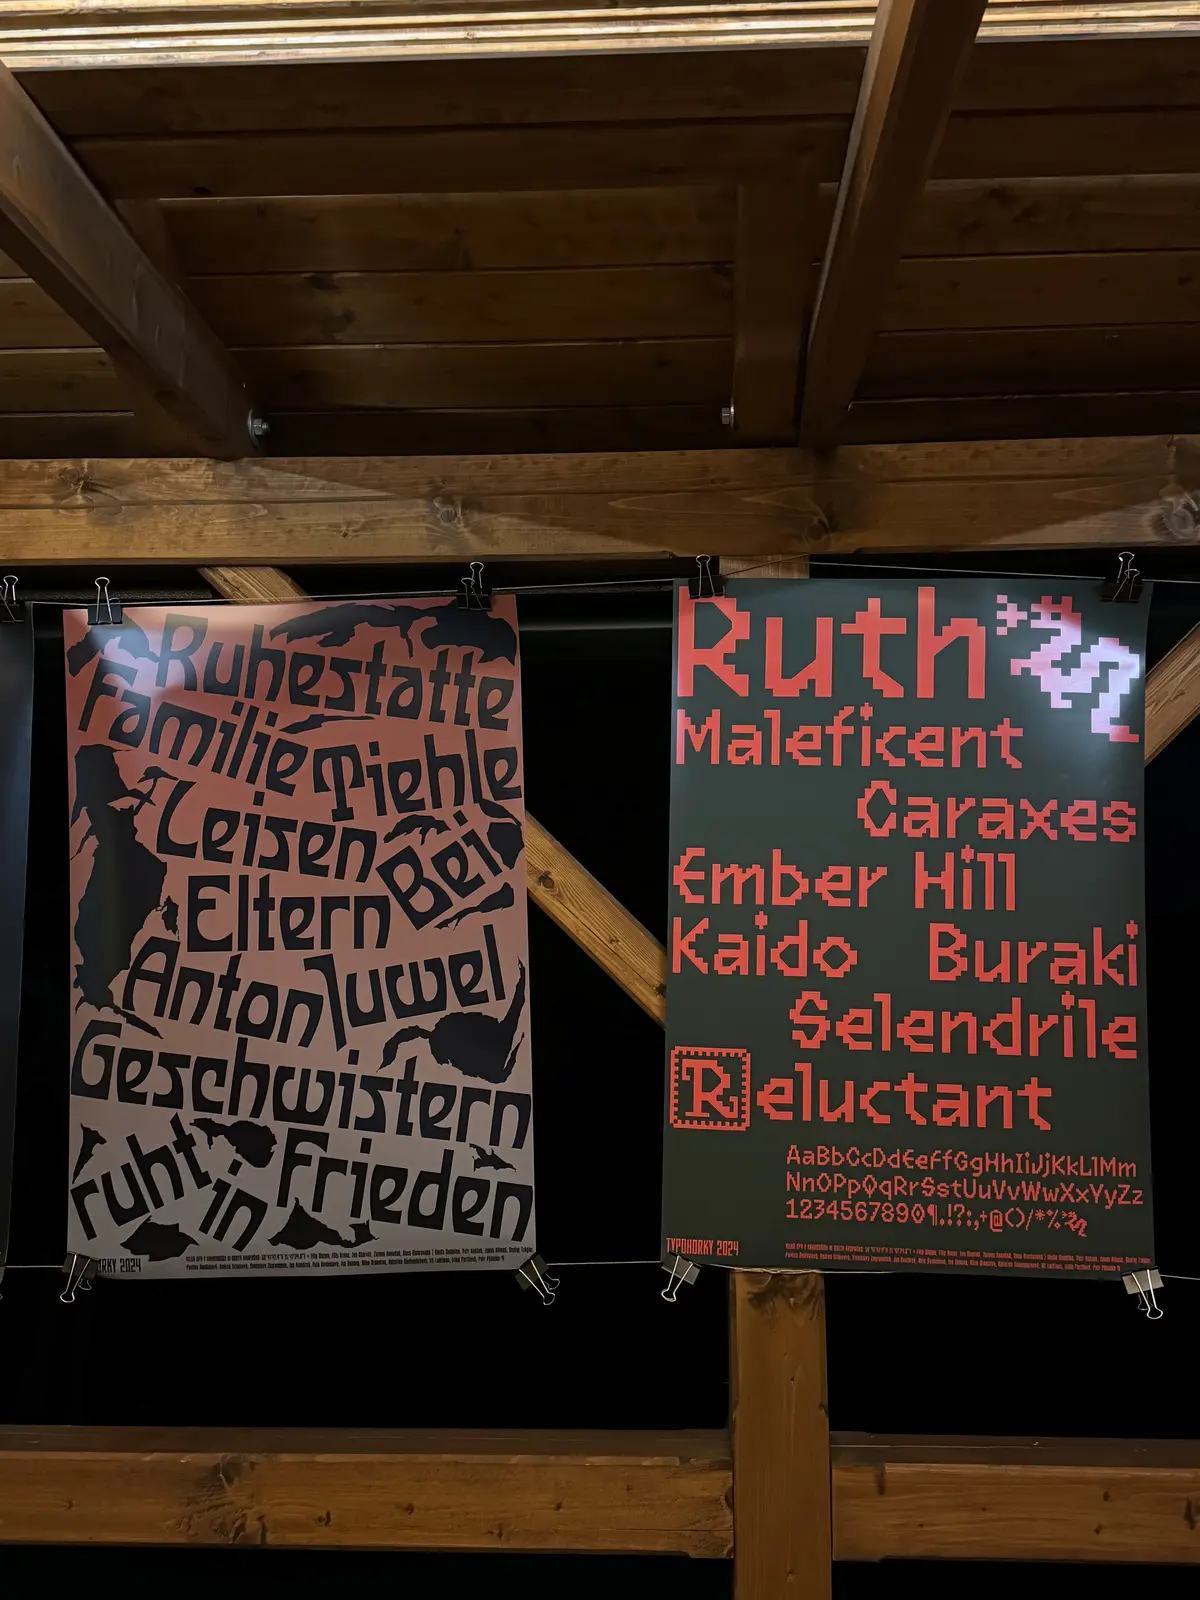 Ruhestatte
Familie Tiehle
Leisen Bei
Eltern
Anton Juwel
Geschwistern
ruht in Frieden
ORKY 2024
Ruth
Maleficent
Caraxes
Ember Hill
Kaido Buraki
Selendrile
Reluctant
AaBbCcDdEeFfGgHhIiJjKkLlMm
NnOPpQqRrSstUuVvWwXxYyZz
1234567890¶.!?:,+@()/*%
TYPOHORKY 2024